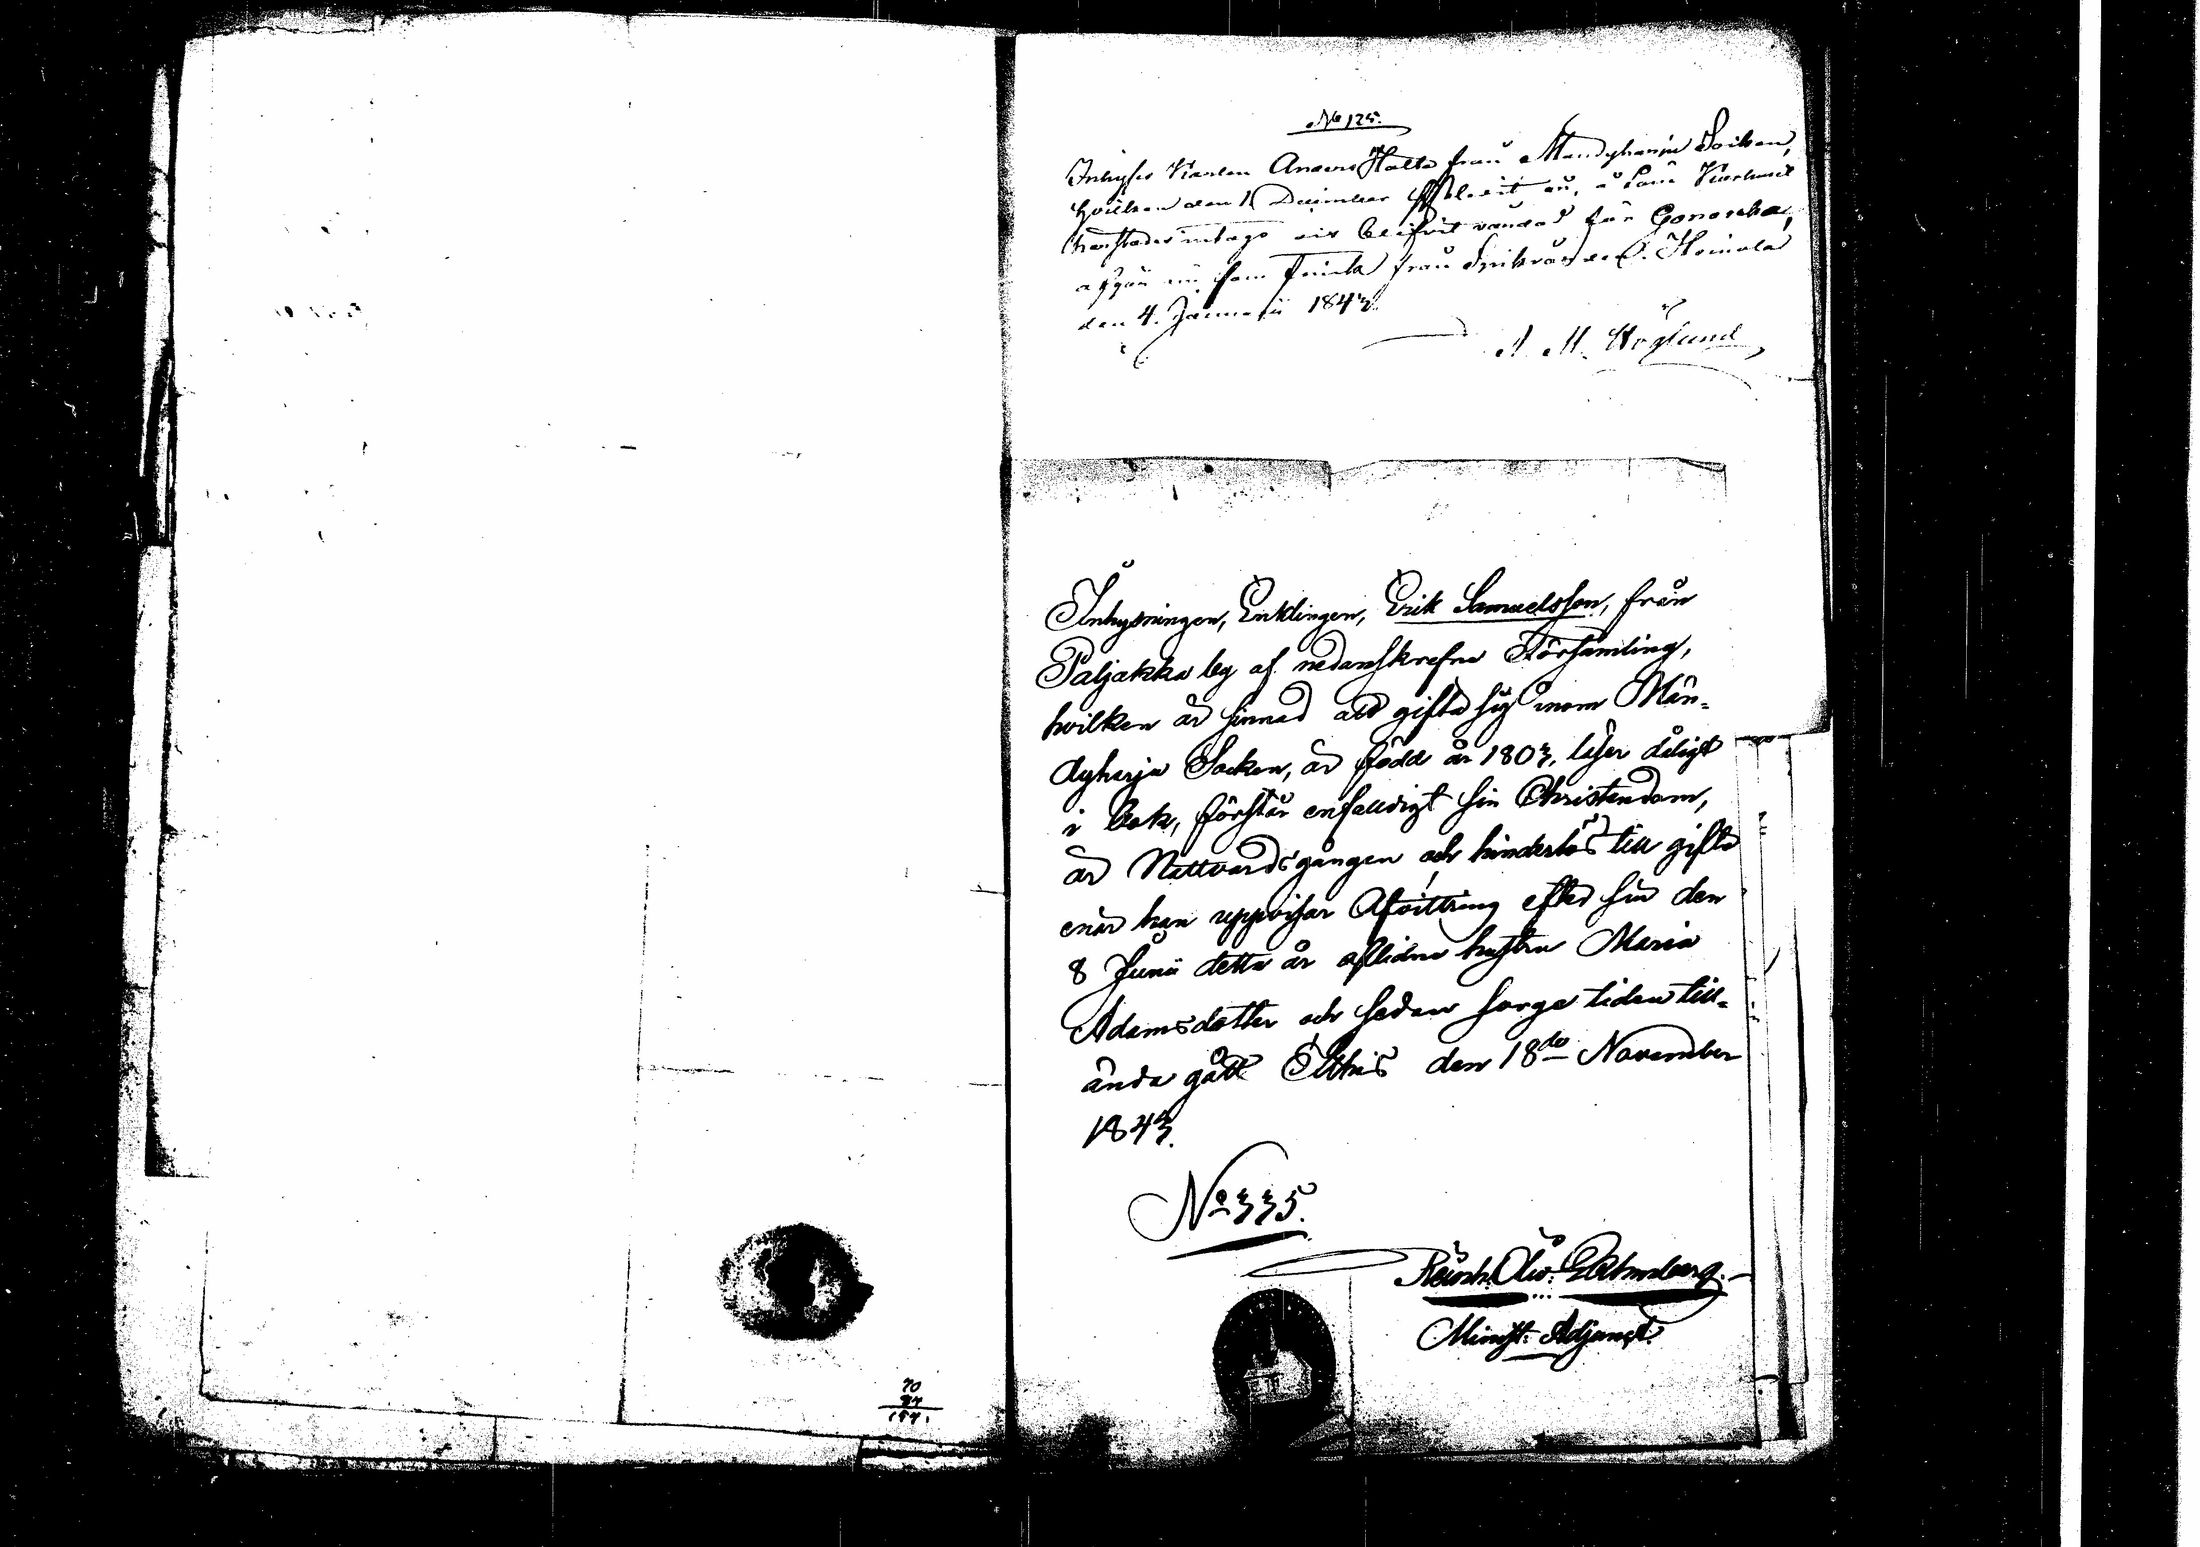 No 125.
Inhyses Karlen Anders Halla från Mändyharju Socken,
hvilken den December blifvit
intagen blifvit vaccinerad för Gonorrhé,
afgår nu som frisk från Heinola
den 4. Januarii 1843.
A. M. Höglund
Inhysningen, Enklingen, Erik Samuelsson, från
Paljakka by af nedanskrefne Församling,
hvilken är sinnad att gifta sig inom Män-
dyharju Socken, är född år 1803, läser dåligt
i bok, förstår enfaldigt sin Christendom,
är Nattvardsgången och hinderlös till gifte
enär han uppvisar Afvittring efter sin den
8 Junii detta år aflidna hustru Maria
Adamsdotter och sedan sorgetiden till-
ända gått Itthis den 18de November
1843.
No 335.
Minist: Adjunct.
70
87
157.